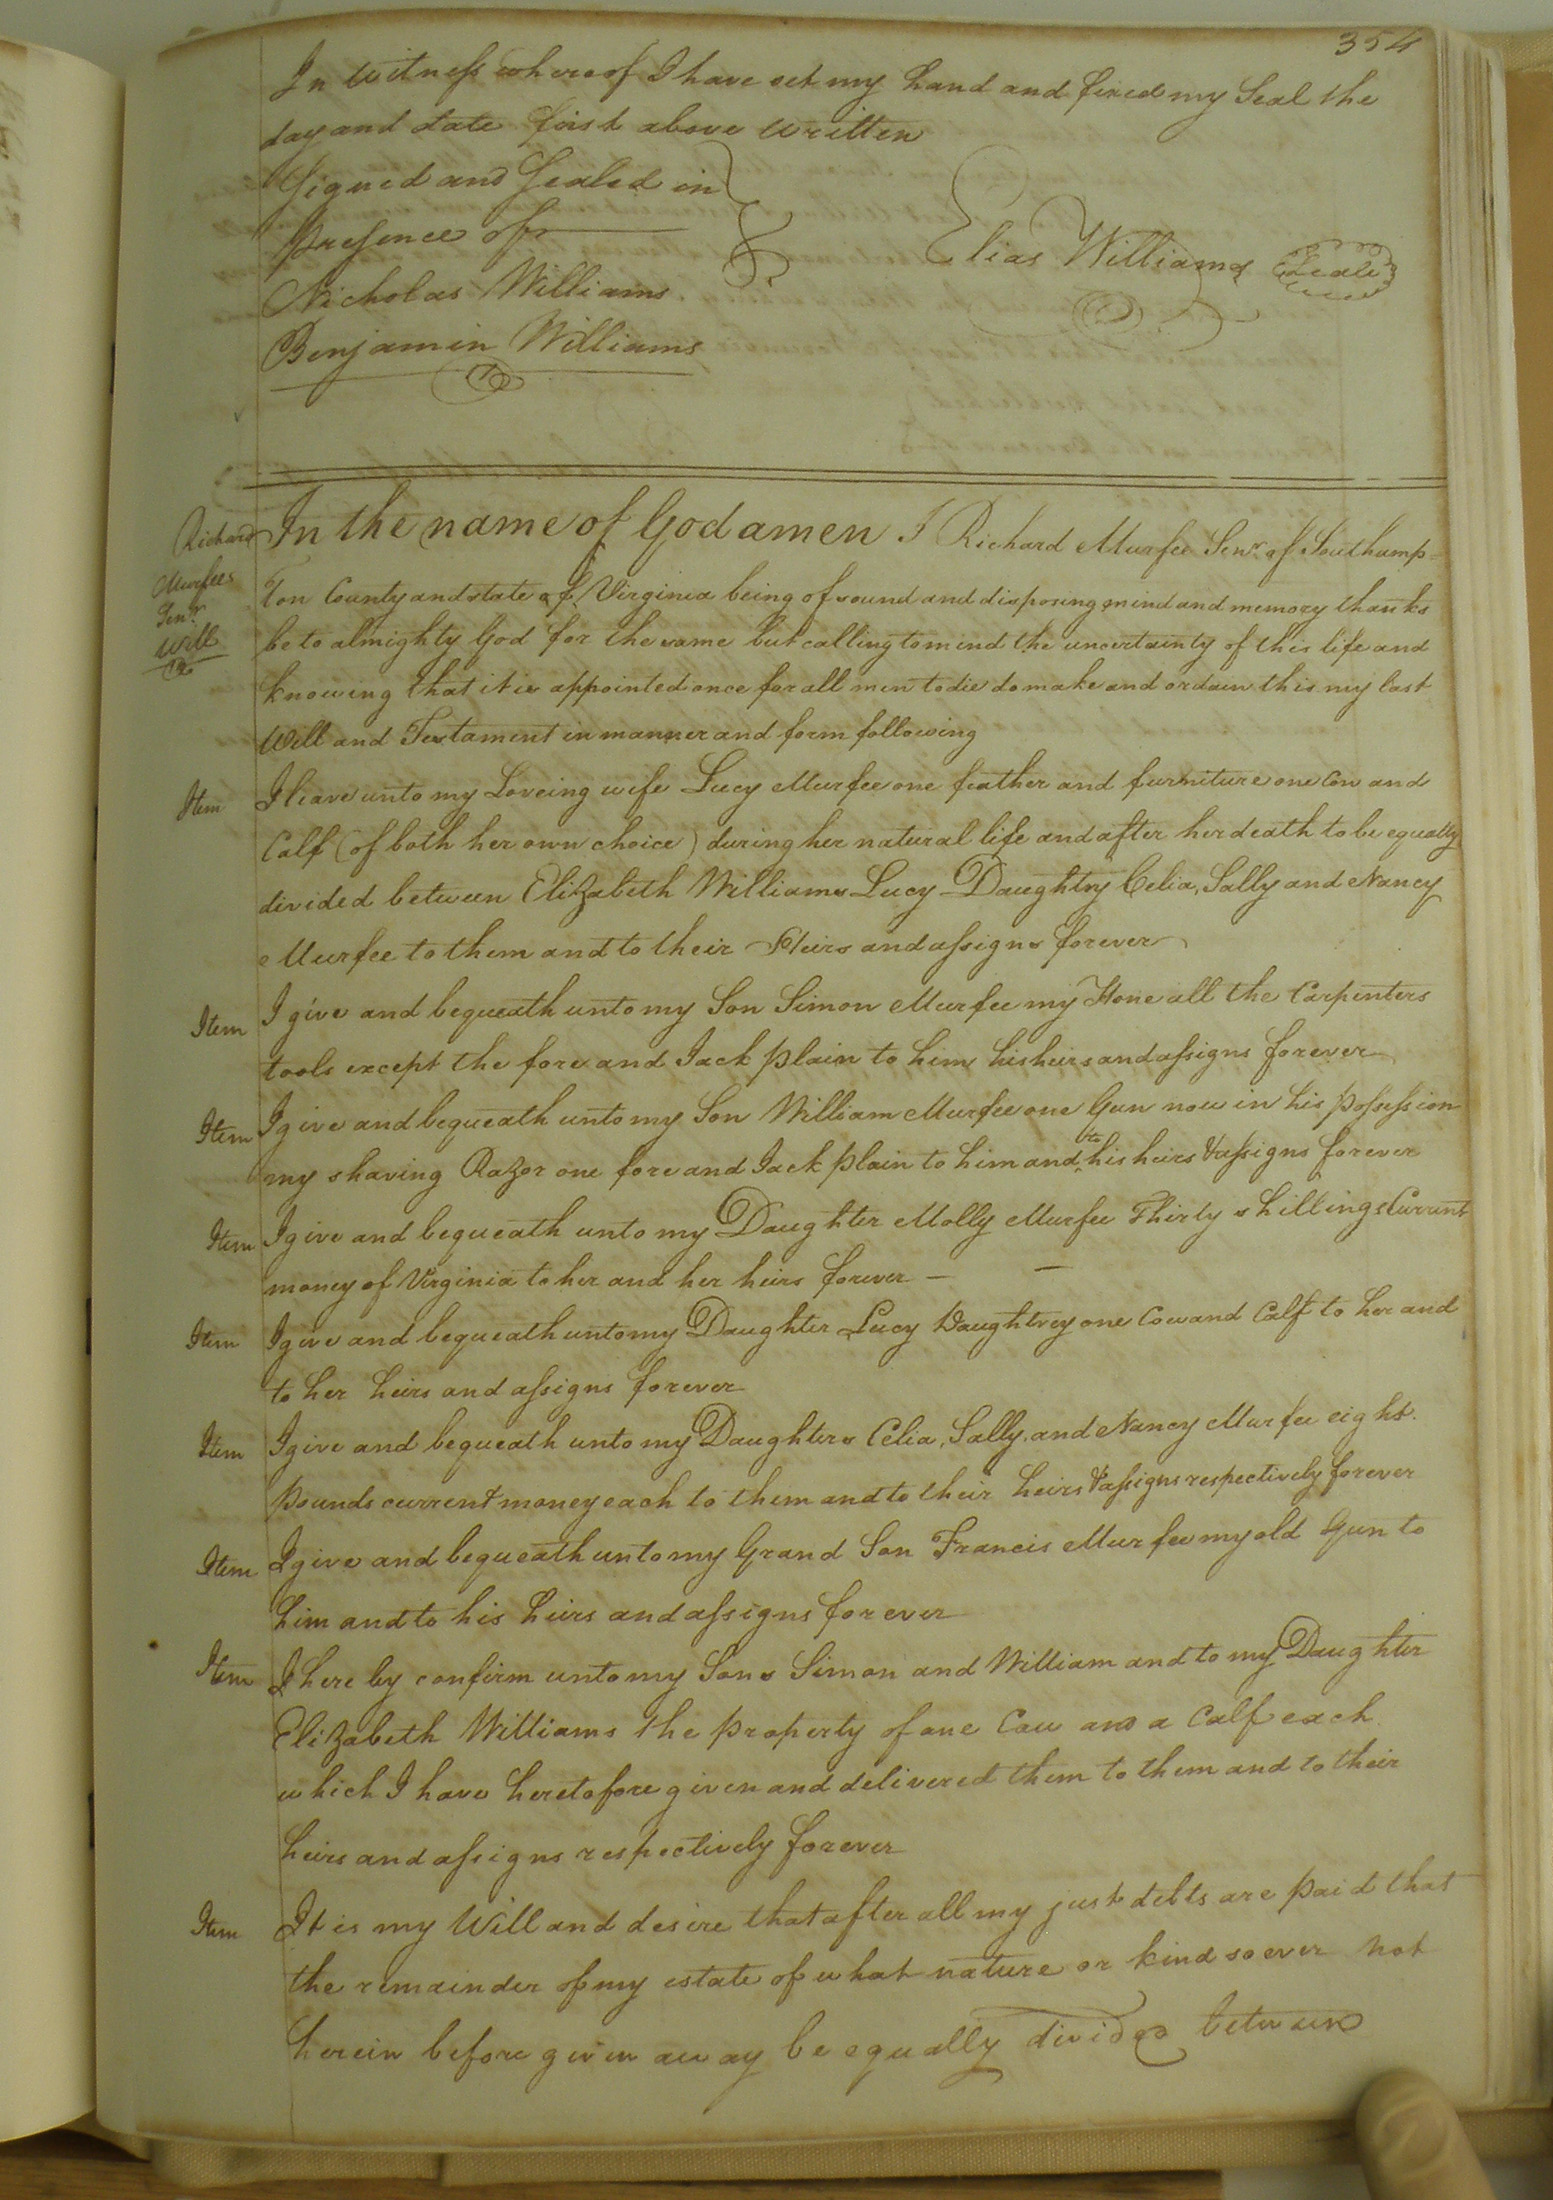 354
In witness whereof I have set my hand and fixed my Seal the
day and date first above written
Signed and Sealed in
presence of
Elias Williams Seal
Nicholas Williams
Benjamin Williams
Richard
Murfees
Senr.
Will
In the name of God amen I Richard Murfee Senr. of Southamp=
ton County and state of Virginia being of sound and disposing mind and memory thanks
be to almighty God for the same but calling to mind the uncertainty of this life and
knowing that it is appointed once for all men to die do make and ordain this my last
Will and Testament in manner and form following
Item I leave unto my Loveing wife Lucy Murfee one feather and furniture one Cow and
Calf (of both her own choice) during her natural life and after her death to be equally
divided between Elizabeth Williams Lucy Daughtry Celia, Sally and Nancy
Murfee to them and to their Heirs and assigns forever
Item I give and bequeath unto my Son Simon Murfee my Hone all the Carpenters
tools except the fore and Jack plain to him his heirs and assigns forever
Item I give and bequeath unto my Son William Murfee one Gun now in his possession
my shaving Razor one fore and Jack plain to him and to his heirs & assigns forever
Item I give and bequeath unto my Daughter Molly Murfee Thirty shillings Currunt
money of Virginia to her and her heirs forever — —
Item I give and bequeath unto my Daughter Lucy Daughtrey one Cow and Calf to her and
to her heirs and assigns forever
Item I give and bequeath unto my Daughters Celia, Sally, and Nancy Murfee eight
pounds current money each to them and to their heirs & assigns respectively forever
Item I give and bequeath unto my Grand Son Francis Murfee my old Gun to
him and to his heirs and assigns forever
Item I here by confirm unto my Sons Simon and William and to my Daughter
Elizabeth Williams the property of one Cow and a Calf each
which I have heretofore given and delivered them to them and to their
heirs and assigns respectively forever
Item It is my Will and desire that after all my just debts are paid that
the remainder of my estate of what nature or kind soever not
herein before given away be equally divided between